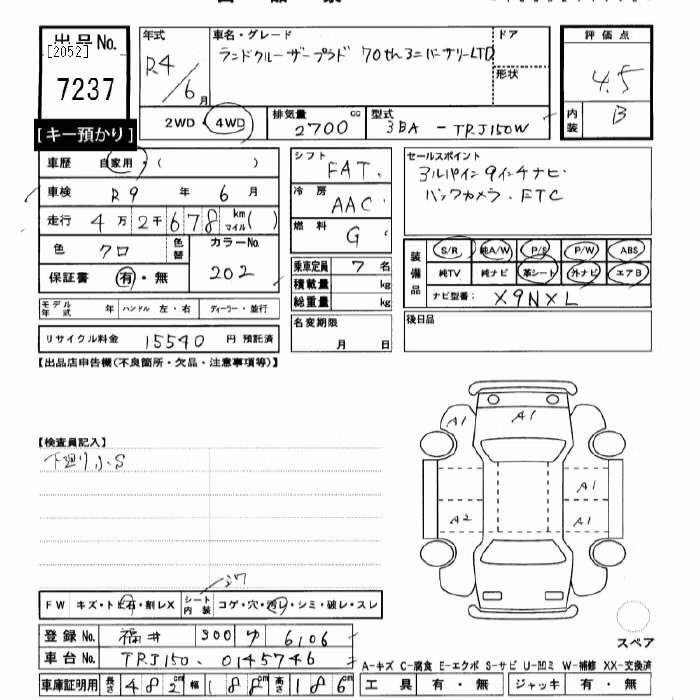 出品No.
[2052]
7237
[キー預かり]
年式
R4/6月
車名・グレード
ランドクルーザープラド 70thアニバーサリーLTD
ドア
形状
2WD・4WD
排気量
2700 cc
型式
3BA - TRJ150W
評価点
4.5
内装
B
車歴 自家用・( )
車検 R9年6月
走行 4万2千678 km マイル( )
色 クロ
色替
カラーNo.
202
保証書 有・無
シフト
FAT.
冷房
AAC
燃料
G
乗車定員 7名
積載量 kg
総重量 kg
名変期限
月 日
セールスポイント
アルパイン9インチナビ・
バックカメラ.ETC
装備品
S/R 純A/W P/S P/W ABS
純TV 純ナビ 革シート 外ナビ エアB
ナビ型番: X9NXL
後日品
モデル年式 年 ハンドル 左・右 ディーラー・並行
リサイクル料金 15540円 預託済
【出品店申告欄(不良箇所・欠品・注意事項等)】
【検査員記入】
下廻り小S
A1
A1
A1
A1
A2
A1
FW キズ・トビ石・割レX
シート内装
コゲ・穴・汚レ・シミ・破レ・スレ
登録No. 福井 300 ゆ 6106
車台No. TRJ150-0145746
車庫証明用 長さ 482 cm 幅 188 cm 高さ 186 cm
スペア
A-キズ C-腐食 E-エクボ S-サビ U-凹ミ W-補修 XX-交換済
工具 有・無 ジャッキ 有・無